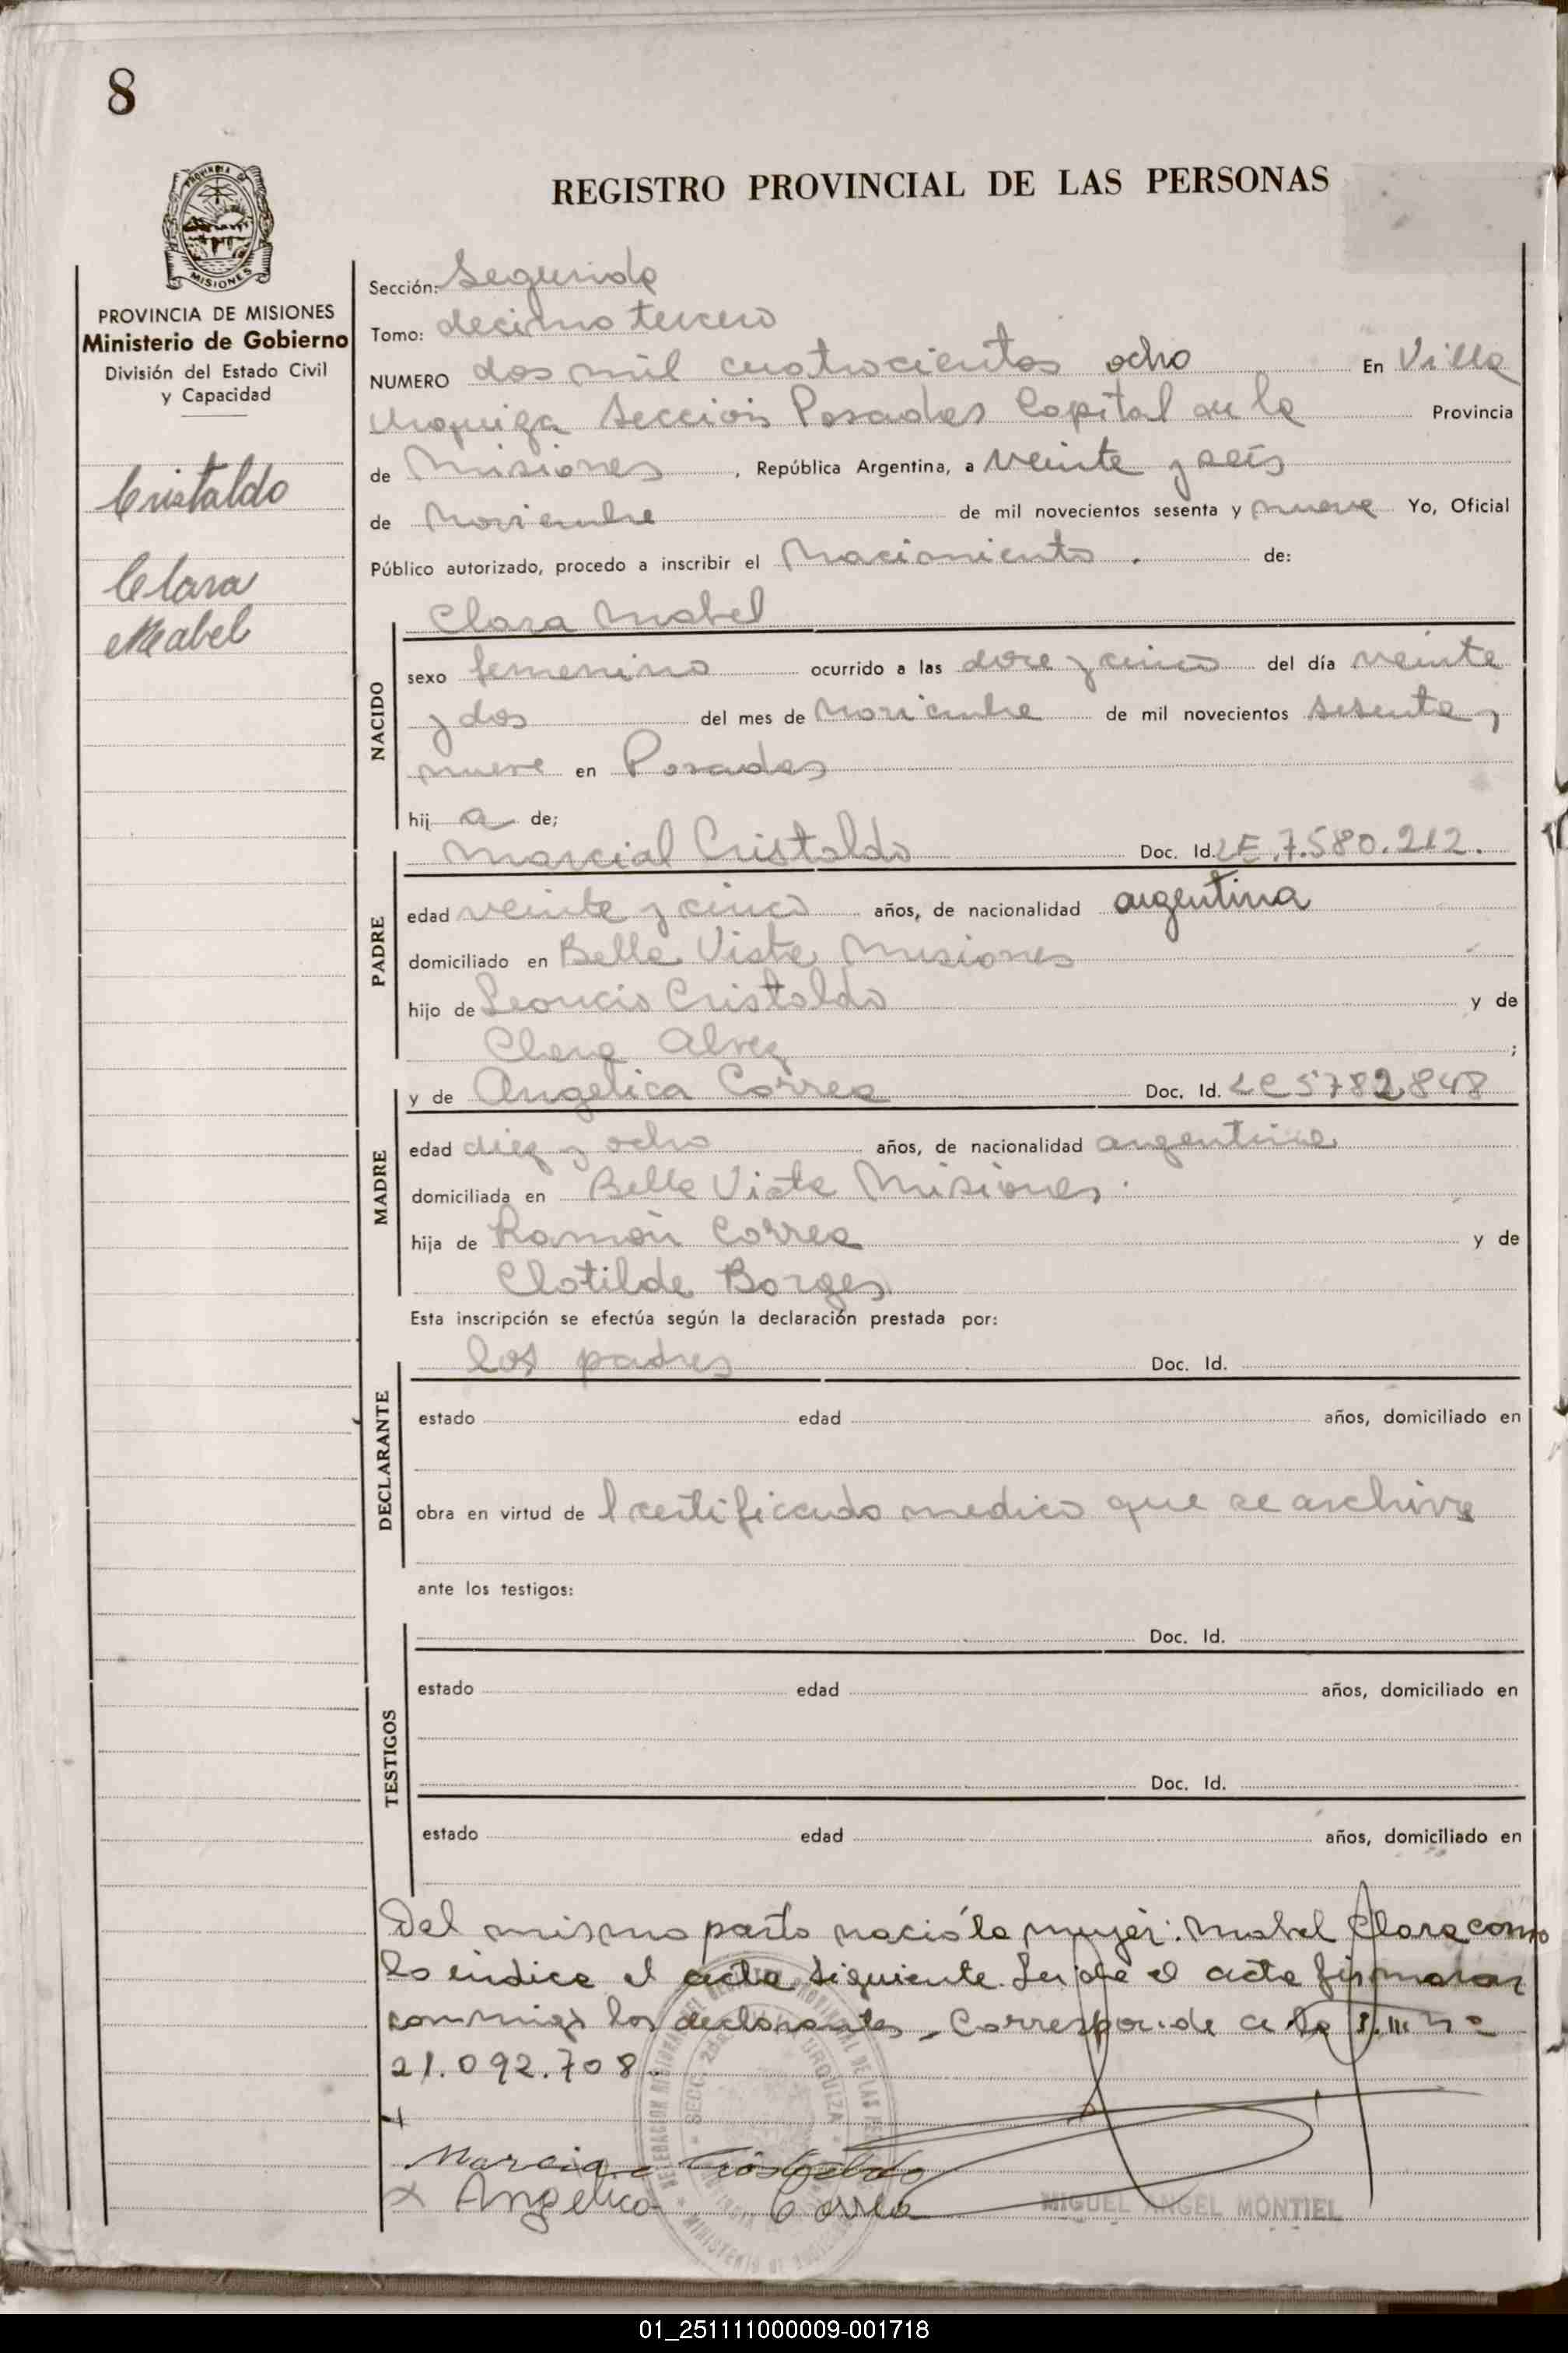 8
REGISTRO PROVINCIAL DE LAS PERSONAS
MISIONES
PROVINCIA DE MISIONES
Ministerio de Gobierno
División del Estado Civil
y Capacidad
Cristaldo
Clara
Mabel
Sección: Segunda
Tomo: decimo tercero
NUMERO dos mil cuatrocientos ocho En Villa
Urquiza Sección Posadas Capital de la Provincia
de Misiones, República Argentina, a veinte y seis
de Noviembre de mil novecientos sesenta y nueve Yo, Oficial
Público autorizado, procedo a inscribir el Nacimiento. de:
Clara Mabel
NACIDO
sexo femenino ocurrido a las doce y cinco del día veinte
y dos del mes de Noviembre de mil novecientos sesenta y
nueve en Posadas
hij a de;
Marcial Cristaldo Doc. Id. LE.7.580.212.
PADRE
edad veinte y cinco años, de nacionalidad argentina
domiciliado en Bella Vista Misiones
hijo de Leoncio Cristaldo y de
Clara Alvez ;
y de Angelica Correa Doc. Id. LC5782.848
MADRE
edad diez y ocho años, de nacionalidad argentina
domiciliada en Bella Vista Misiones.
hija de Ramón Correa y de
Clotilde Borges
Esta inscripción se efectúa según la declaración prestada por:
los padres Doc. Id.
DECLARANTE
estado edad años, domiciliado en
obra en virtud de l certificado medico que se archiva
ante los testigos:
Doc. Id.
TESTIGOS
estado edad años, domiciliado en
Doc. Id.
estado edad años, domiciliado en
Del mismo parto nació la mujer: Mabel Clara como
lo indica el acta siguiente. Leida el acta firmaron
conmigo los declarantes. Corresponde a la nº
21.092.708.
Marcial Cristaldo
x Angelica Correa
MIGUEL ANGEL MONTIEL
01_251111000009-001718